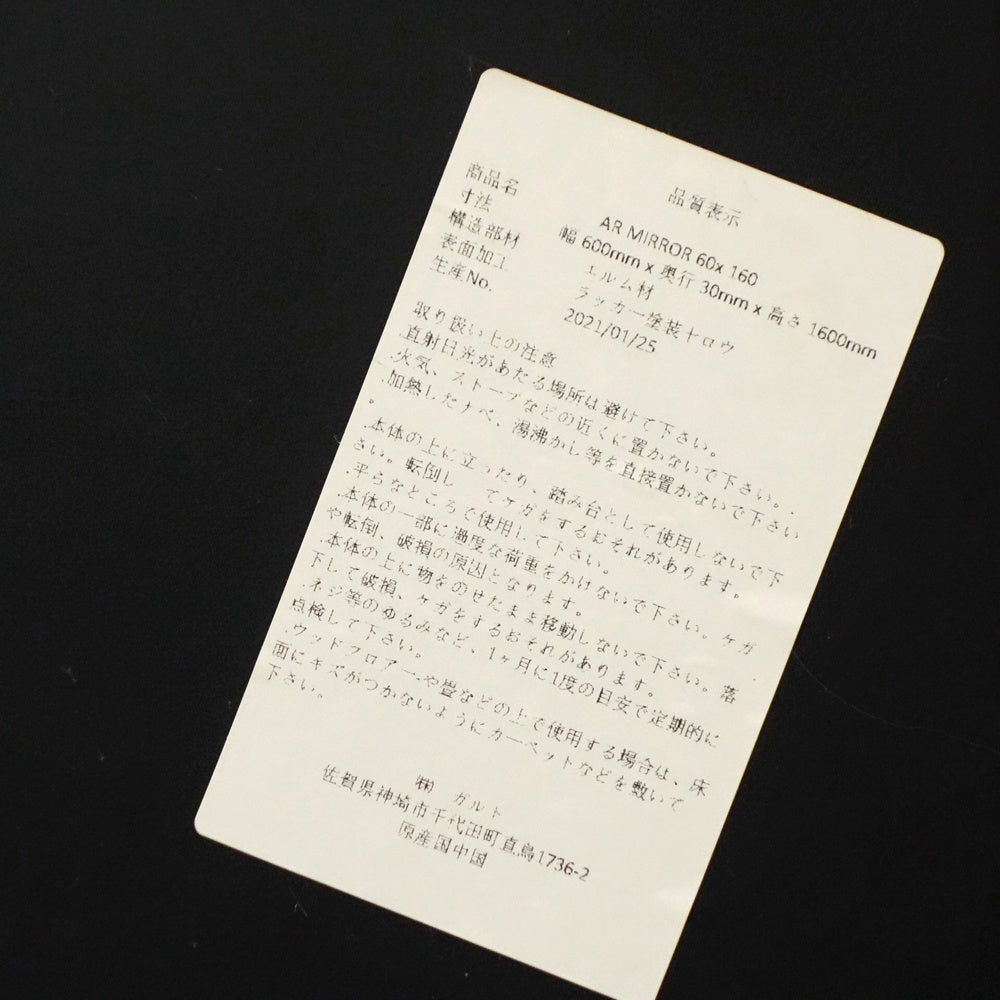 品質表示
商品名 AR MIRROR 60x 160
寸法 幅 600mm x 奥行 30mm x 高さ 1600mm
構造部材 エルム材
表面加工 ラッカー塗装ナロウ
生産No. 2021/01/25
取り扱い上の注意
.直射日光があたる場所は避けて下さい。
.火気、ストーブなどの近くに置かないで下さい。.
.加熱したナベ、湯沸かし等を直接置かないで下さい
。
.本体の上に立ったり、踏み台として使用しないで下
さい。転倒し てケガをするおそれがあります。
.平らなところで使用して下さい。
.本体の一部に過度な荷重をかけないで下さい。ケガ
や転倒、破損の原因となります。
.本体の上に物をのせたまま移動しないで下さい。落
下して破損、ケガをするおそれがあります。
.ネジ等のゆるみなど、1ヶ月に1度の目安で定期的に
点検して下さい。
.ウッドフロアーや畳などの上で使用する場合は、床
面にキズがつかないようにカーペットなどを敷いて
下さい。
㈱ ガルト
佐賀県神埼市千代田町直鳥1736-2
原産国中国